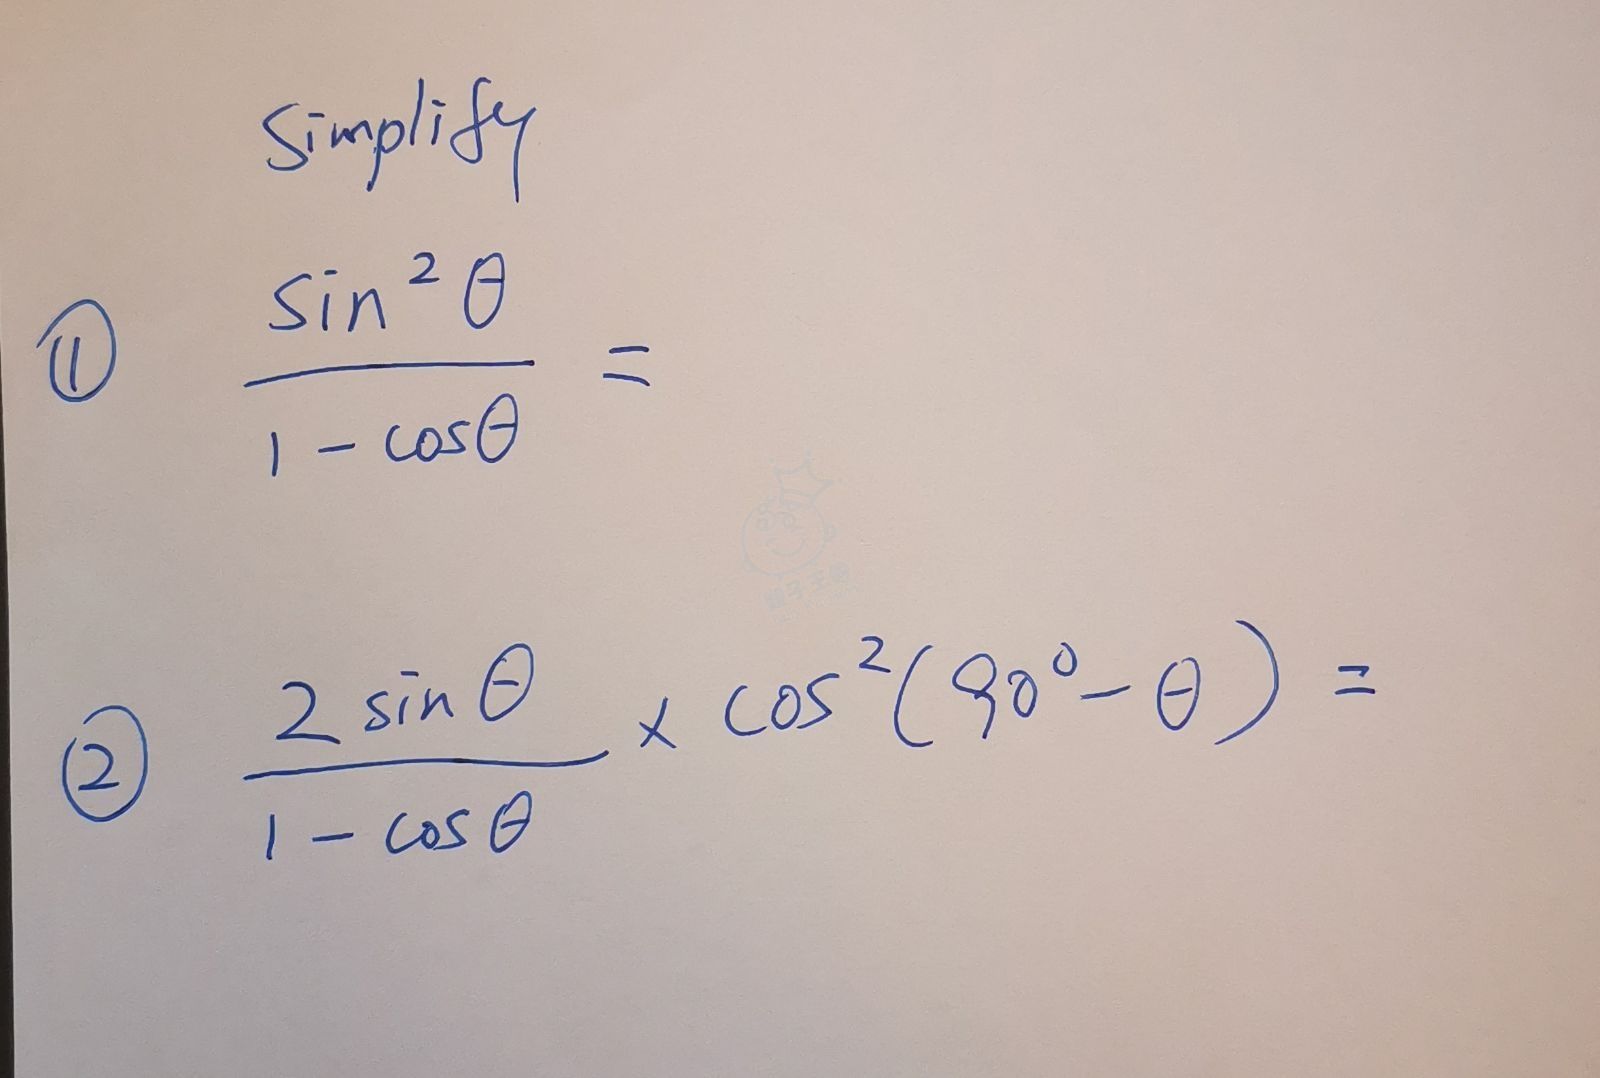 Simplify
① sin²θ / (1 - cosθ) =
② 2 sin θ / (1 - cos θ) × cos²(90° - θ) =
親子王國